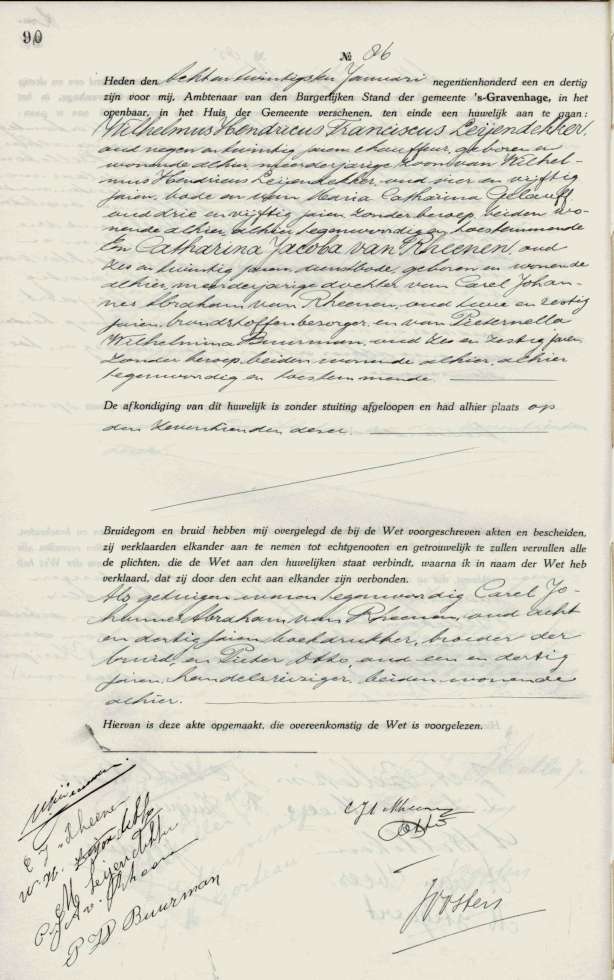 90
№ 86
Heden den achtentwintigsten Januari negentienhonderd een en dertig
zijn voor mij, Ambtenaar van den Burgerlijken Stand der gemeente 's-Gravenhage, in het
openbaar, in het Huis der Gemeente verschenen, ten einde een huwelijk aan te gaan:
Wilhelmus Hendricus Franciscus Leijendekker,
oud negen en twintig jaren, chauffeur, geboren en
wonende alhier, meerderjarige zoon van Wilhel-
mus Hendricus Leijendekker, oud vier en vijftig
jaren, bode en van Maria Catharina Gelauff
oud drie en vijftig jaren, zonder beroep, beiden wo-
nende alhier, alhier tegenwoordig en toestemmende
En Catharina Jacoba van Rheenen, oud
zes en twintig jaren, dienstbode, geboren en wonende
alhier, meerderjarige dochter van Carel Johan-
nes Abraham van Rheenen, oud twee en zestig
jaren, brandstoffenbezorger, en van Pieternella
Wilhelmina Buurman, oud zes en zestig jaren
zonder beroep, beiden wonende alhier, alhier
tegenwoordig en toestemmende.
De afkondiging van dit huwelijk is zonder stuiting afgeloopen en had alhier plaats op
den zeventienden dezer.
Bruidegom en bruid hebben mij overgelegd de bij de Wet voorgeschreven akten en bescheiden,
zij verklaarden elkander aan te nemen tot echtgenooten en getrouwelijk te zullen vervullen alle
de plichten, die de Wet aan den huwelijken staat verbindt, waarna ik in naam der Wet heb
verklaard, dat zij door den echt aan elkander zijn verbonden.
Als getuigen waren tegenwoordig Carel Jo-
hannes Abraham van Rheenen, oud acht
en dertig jaren, boekdrukker, broeder der
bruid, en Pieter Otto, oud een en dertig
jaren, handelsreiziger, beiden wonende
alhier.
Hiervan is deze akte opgemaakt, die overeenkomstig de Wet is voorgelezen.
Leijendekker
P W Buurman
Otto